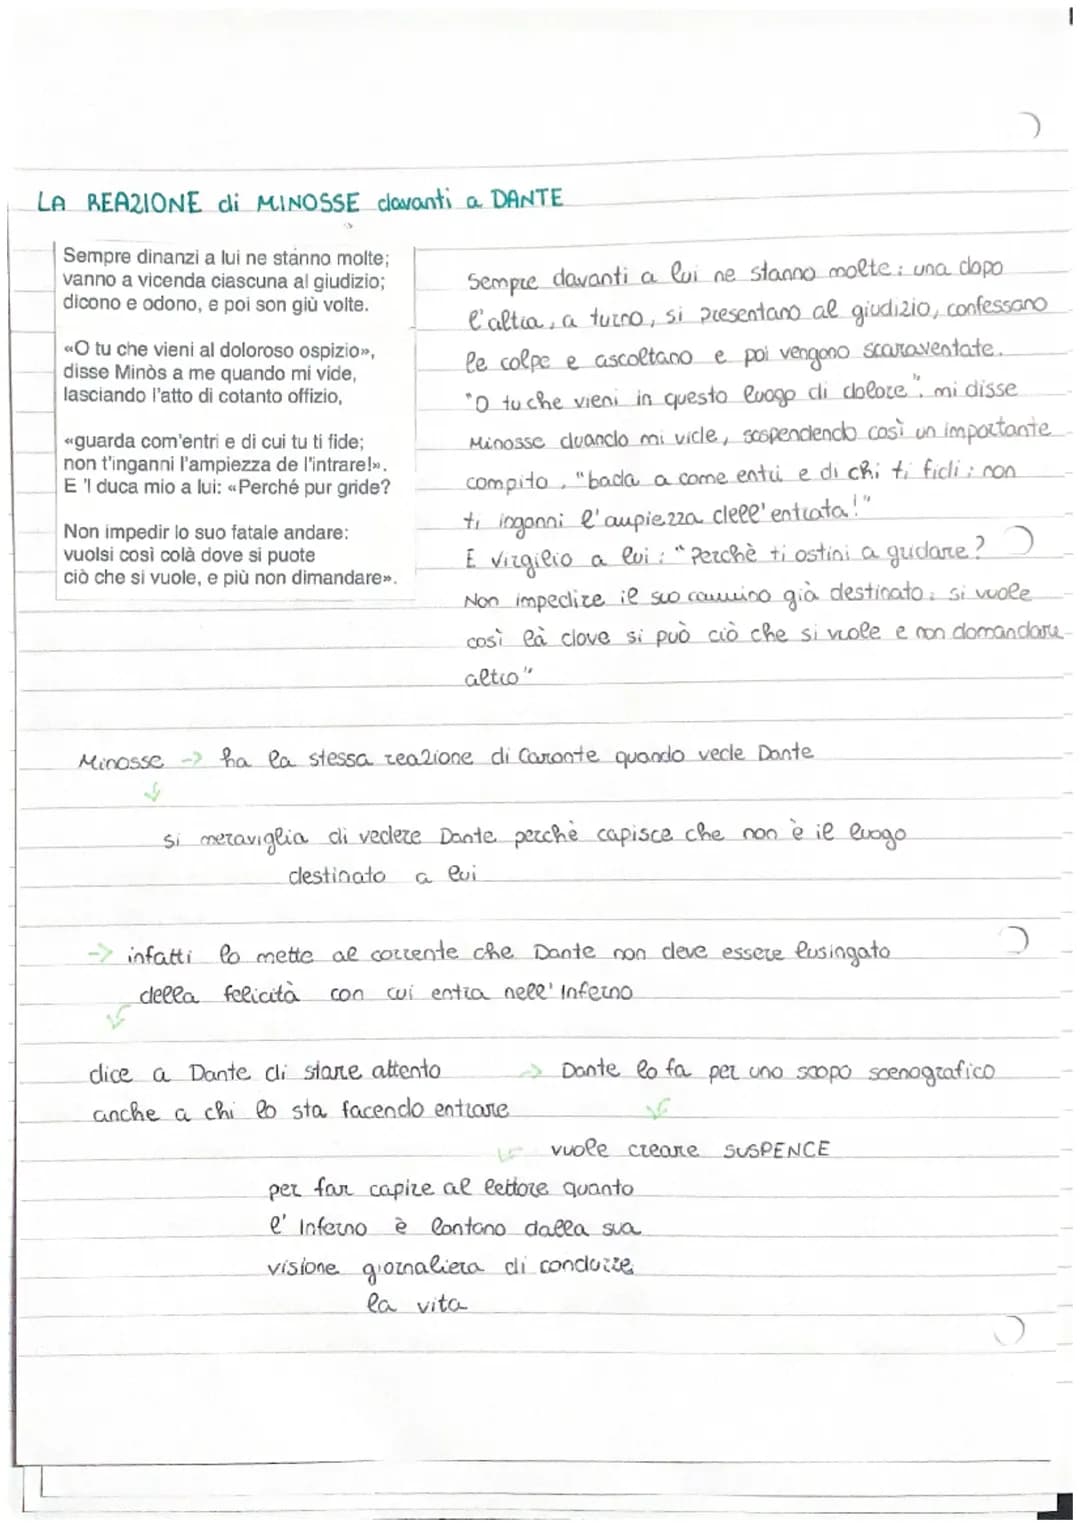 LA REAZIONE di MINOSSE davanti a DANTE
Sempre dinanzi a lui ne stanno molte;
vanno a vicenda ciascuna al giudizio;
dicono e odono, e poi son giù volte.
«O tu che vieni al doloroso ospizio»,
disse Minòs a me quando mi vide,
lasciando l'atto di cotanto offizio,
«guarda com'entri e di cui tu ti fide;
non t'inganni l'ampiezza de l'intrare!».
E 'l duca mio a lui: «Perché pur gride?
Non impedir lo suo fatale andare:
vuolsi così colà dove si puote
ciò che si vuole, e più non dimandare».
Sempre davanti a lui ne stanno molte: una dopo
l'altra, a turno, si presentano al giudizio, confessano
le colpe e ascoltano e poi vengono scaraventate.
"O tu che vieni in questo luogo di dolore", mi disse
Minosse quando mi vide, sospendendo così un importante
compito, "bada a come entri e di chi ti fidi: non
ti inganni l'ampiezza dell'entrata!"
E Virgilio a lui: "Perchè ti ostini a gridare?
Non impedire il suo cammino già destinato: si vuole
così là dove si può ciò che si vuole e non domandare
altro"
Minosse -> ha la stessa reazione di Caronte quando vede Dante
si meraviglia di vedere Dante perchè capisce che non è il luogo
destinato a lui
-> infatti lo mette al corrente che Dante non deve essere lusingato
della felicità con cui entra nell'Inferno
dice a Dante di stare attento
anche a chi lo sta facendo entrare
-> Dante lo fa per uno scopo scenografico
vuole creare SUSPENCE
per far capire al lettore quanto
l'Inferno è lontano dalla sua
visione giornaliera di condurre
la vita